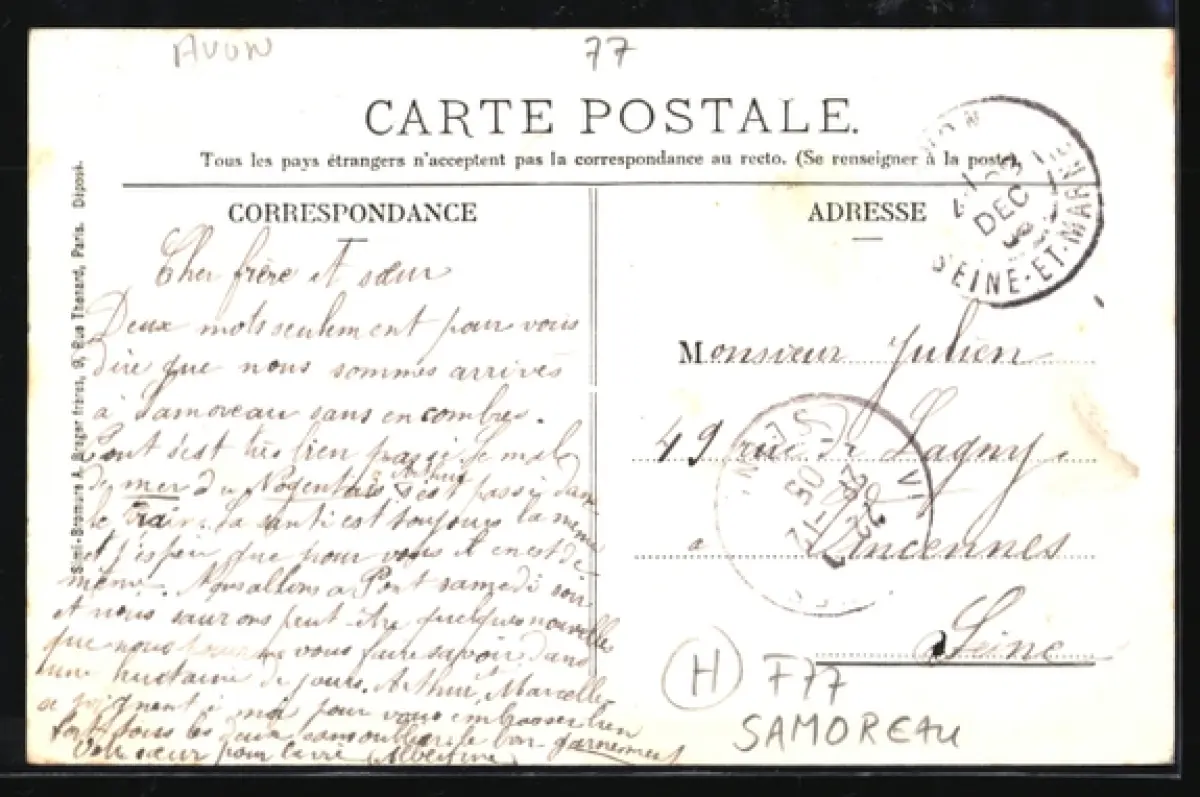 AVON
77
CARTE POSTALE.
Tous les pays étrangers n'acceptent pas la correspondance au recto. (Se renseigner à la poste).
CORRESPONDANCE
ADRESSE
DEC
SEINE-ET-MARNE
Simi-Bromure A. Breger frères, 9, Rue Thenard, Paris. Déposé.
Cher frère et sœur
Deux mots seulement pour vous
dire que nous sommes arrivés
à Samoreau sans encombres.
tout s'est très bien passé le mal
de mer d
Arthur
s'est passé dans
le train. La santé est toujours la même
et j'espère que pour vous il en est de
même. Nous allons a Pont samedi soir
et nous saurons peut-être quelques nouvelles
que nous vous faire savoir dans
une huitaine de jours. Arthur, Marcelle
se joignent à moi pour vous embrasser bien
fort tous les deux sans oublier le bon garnement
Votre sœur pour la vie (Albertine)
Monsieur Julien
49 rue de Lagny.
a Vincennes
Seine
H
F77
SAMOREAU